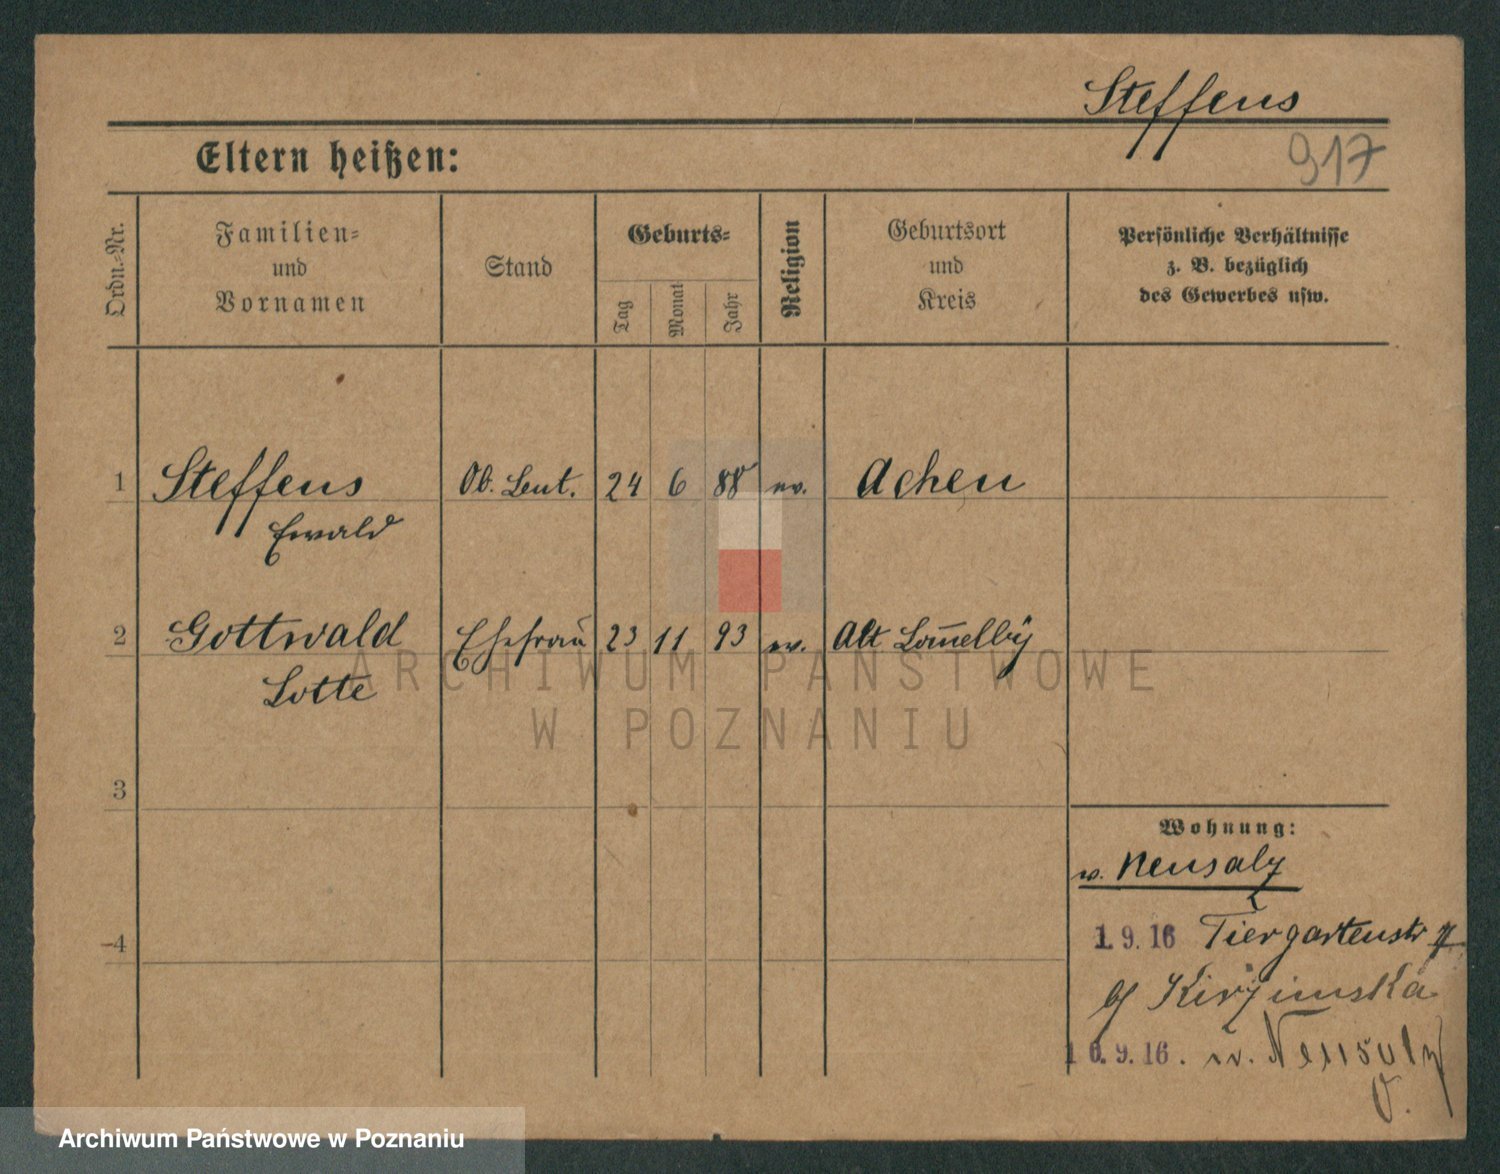 Steffens
917
Eltern heißen:
Ordn.-Nr.
Familien-
und
Vornamen
Stand
Geburts-
Tag
Monat
Jahr
Religion
Geburtsort
und
Kreis
Persönliche Verhältnisse
z. B. bezüglich
des Gewerbes usw.
1 Steffens Ob. Leut. 24 6 88 ev. Achen
Ewald
2 Gottwald Ehefrau 23 11 93 ev. Alt
Lotte
ARCHIWUM PAŃSTWOWE
W POZNANIU
3
Wohnung:
Neusalz
4
1.9.16 Tiergartenstr
b/
10.9.16. Neusalz
Archiwum Państwowe w Poznaniu